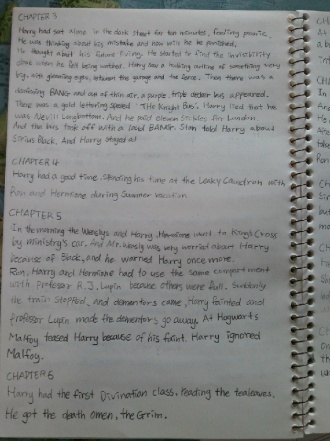 CHAPTER 3
Harry had sat alone in the dark street for ten minutes, feeling panic.
He was thinking about his mistake and how will he be punished,
He thought about his future living. He started to find the invisibility
cloak when he felt being watched. Harry saw a hulking outline of something very
big, with gleaming eyes, between the garage and the fence. Then there was a
deafening BANG and out of thin air, a purple triple decker bus appeared.
There was a gold lettering spelled "The Knight Bus". Harry lied that he
was Nevill Longbottom. And he paid eleven sickles for London.
And the bus took off with a loud BANG. Stan told Harry about
Sirius Black. And Harry stayed at
CHAPTER 4
Harry had a good time spending his time at the Leaky Cauldron with
Ron and Hermione during Summer vacation
CHAPTER 5
In the morning the Weaslys and Harry, Hermione went to King's Cross
by ministry's car. And Mr. Wesly was very worried about Harry
because of Black, and he warned Harry once more.
Ron, Harry and Hermione had to use the same compartment
with professor R.J. Lupin because others were full. Suddenly
the train stopped, and dementors came, Harry fainted and
professor Lupin made the dementors go away. At Hogwarts
Malfoy teased Harry because of his faint. Harry ignored
Malfoy.
CHAPTER 6
Harry had the first Divination class, reading the tealeaves.
He got the death omen, the Grim.